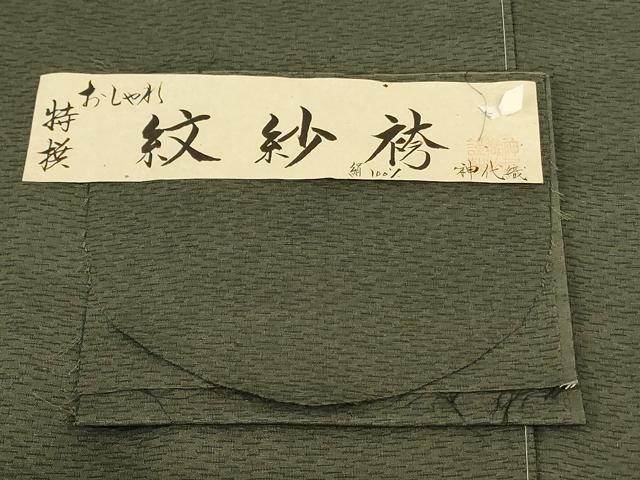 特撰
おしゃれ
紋紗袴
絹100%
神代織